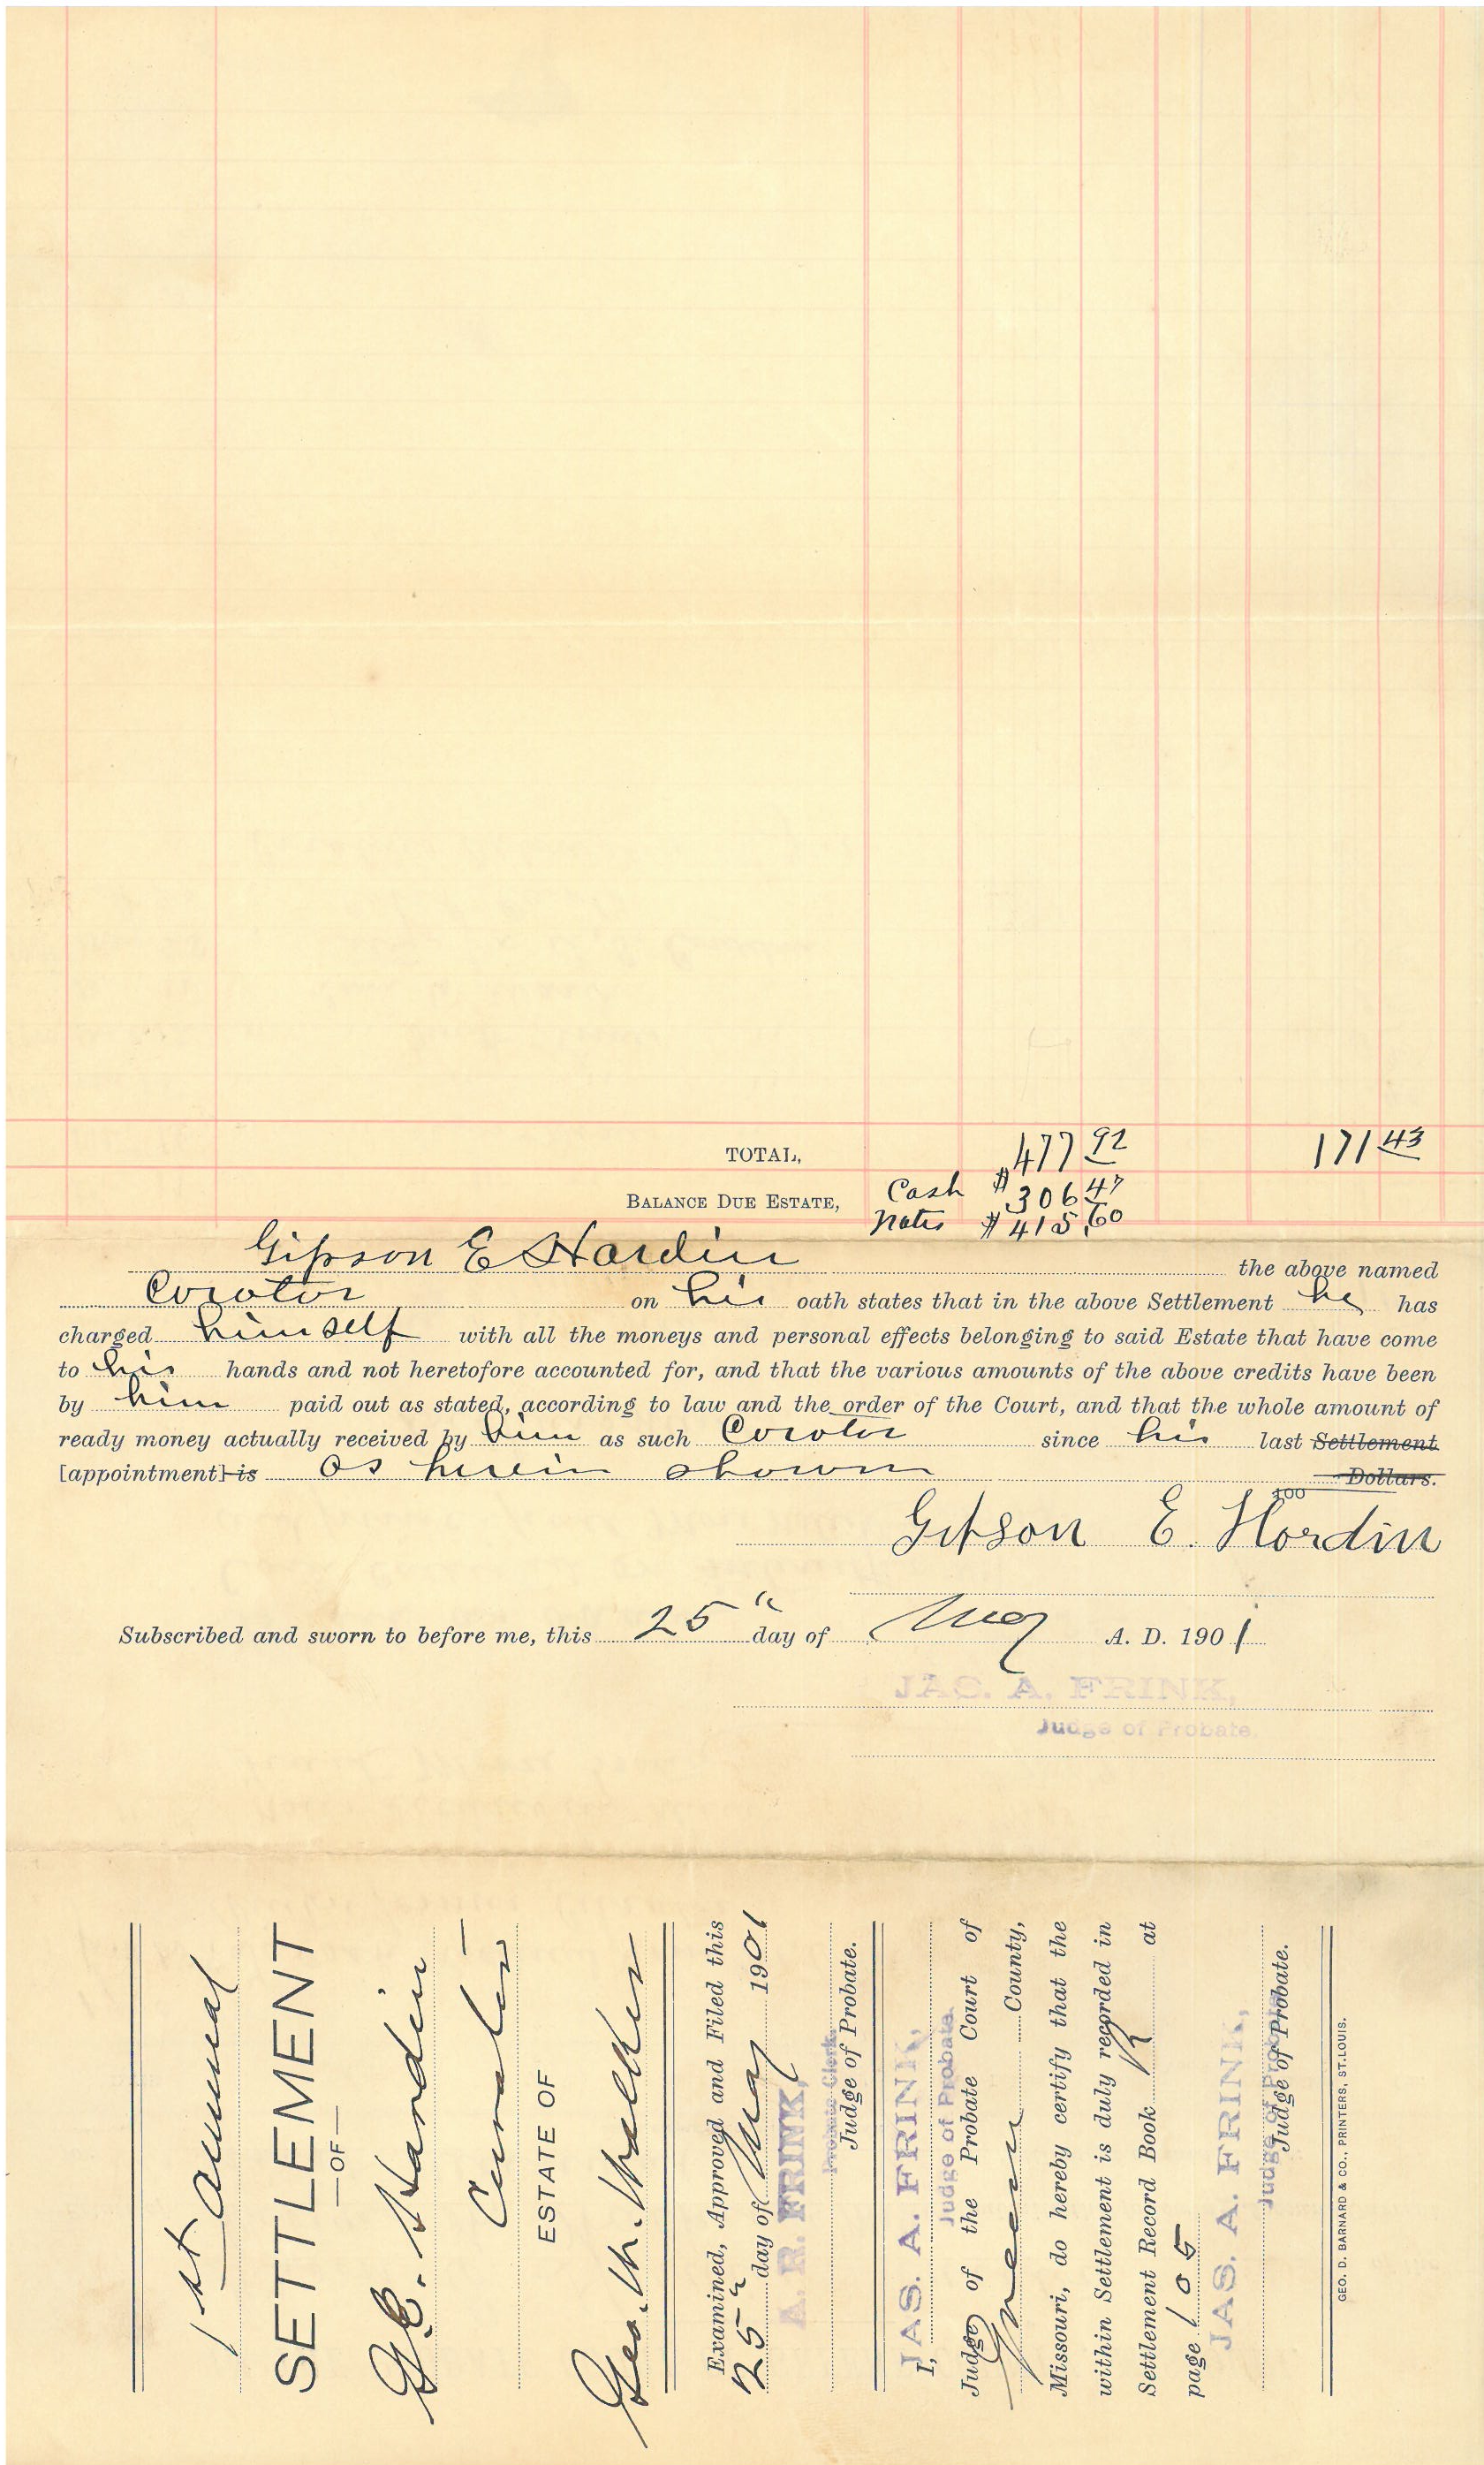 TOTAL, 477 92 171 43
BALANCE DUE ESTATE, Cash $306 47
Notes $415,60
Gipson E Hardin the above named
Curator on his oath states that in the above Settlement he has
charged himself with all the moneys and personal effects belonging to said Estate that have come
to his hands and not heretofore accounted for, and that the various amounts of the above credits have been
by him paid out as stated, according to law and the order of the Court, and that the whole amount of
ready money actually received by him as such Curator since his last Settlement
[appointment] is as herein shown Dollars.
100
Gipson E. Hardin
Subscribed and sworn to before me, this 25" day of May A. D. 1901
JAS. A. FRINK,
Judge of Probate.
1st Annual
SETTLEMENT
—OF—
G. E. Hardin
Curator
ESTATE OF
Geo. W.
Examined, Approved and Filed this
25" day of May 1901
A. R. FRINK,
Probate Clerk.
Judge of Probate.
I, JAS. A. FRINK,
Judge of Probate.
Judge of the Probate Court of
Greene County,
Missouri, do hereby certify that the
within Settlement is duly recorded in
Settlement Record Book at
page 105
JAS. A. FRINK,
Judge of Probate.
Judge of Probate.
GEO. D. BARNARD & CO., PRINTERS, ST. LOUIS.